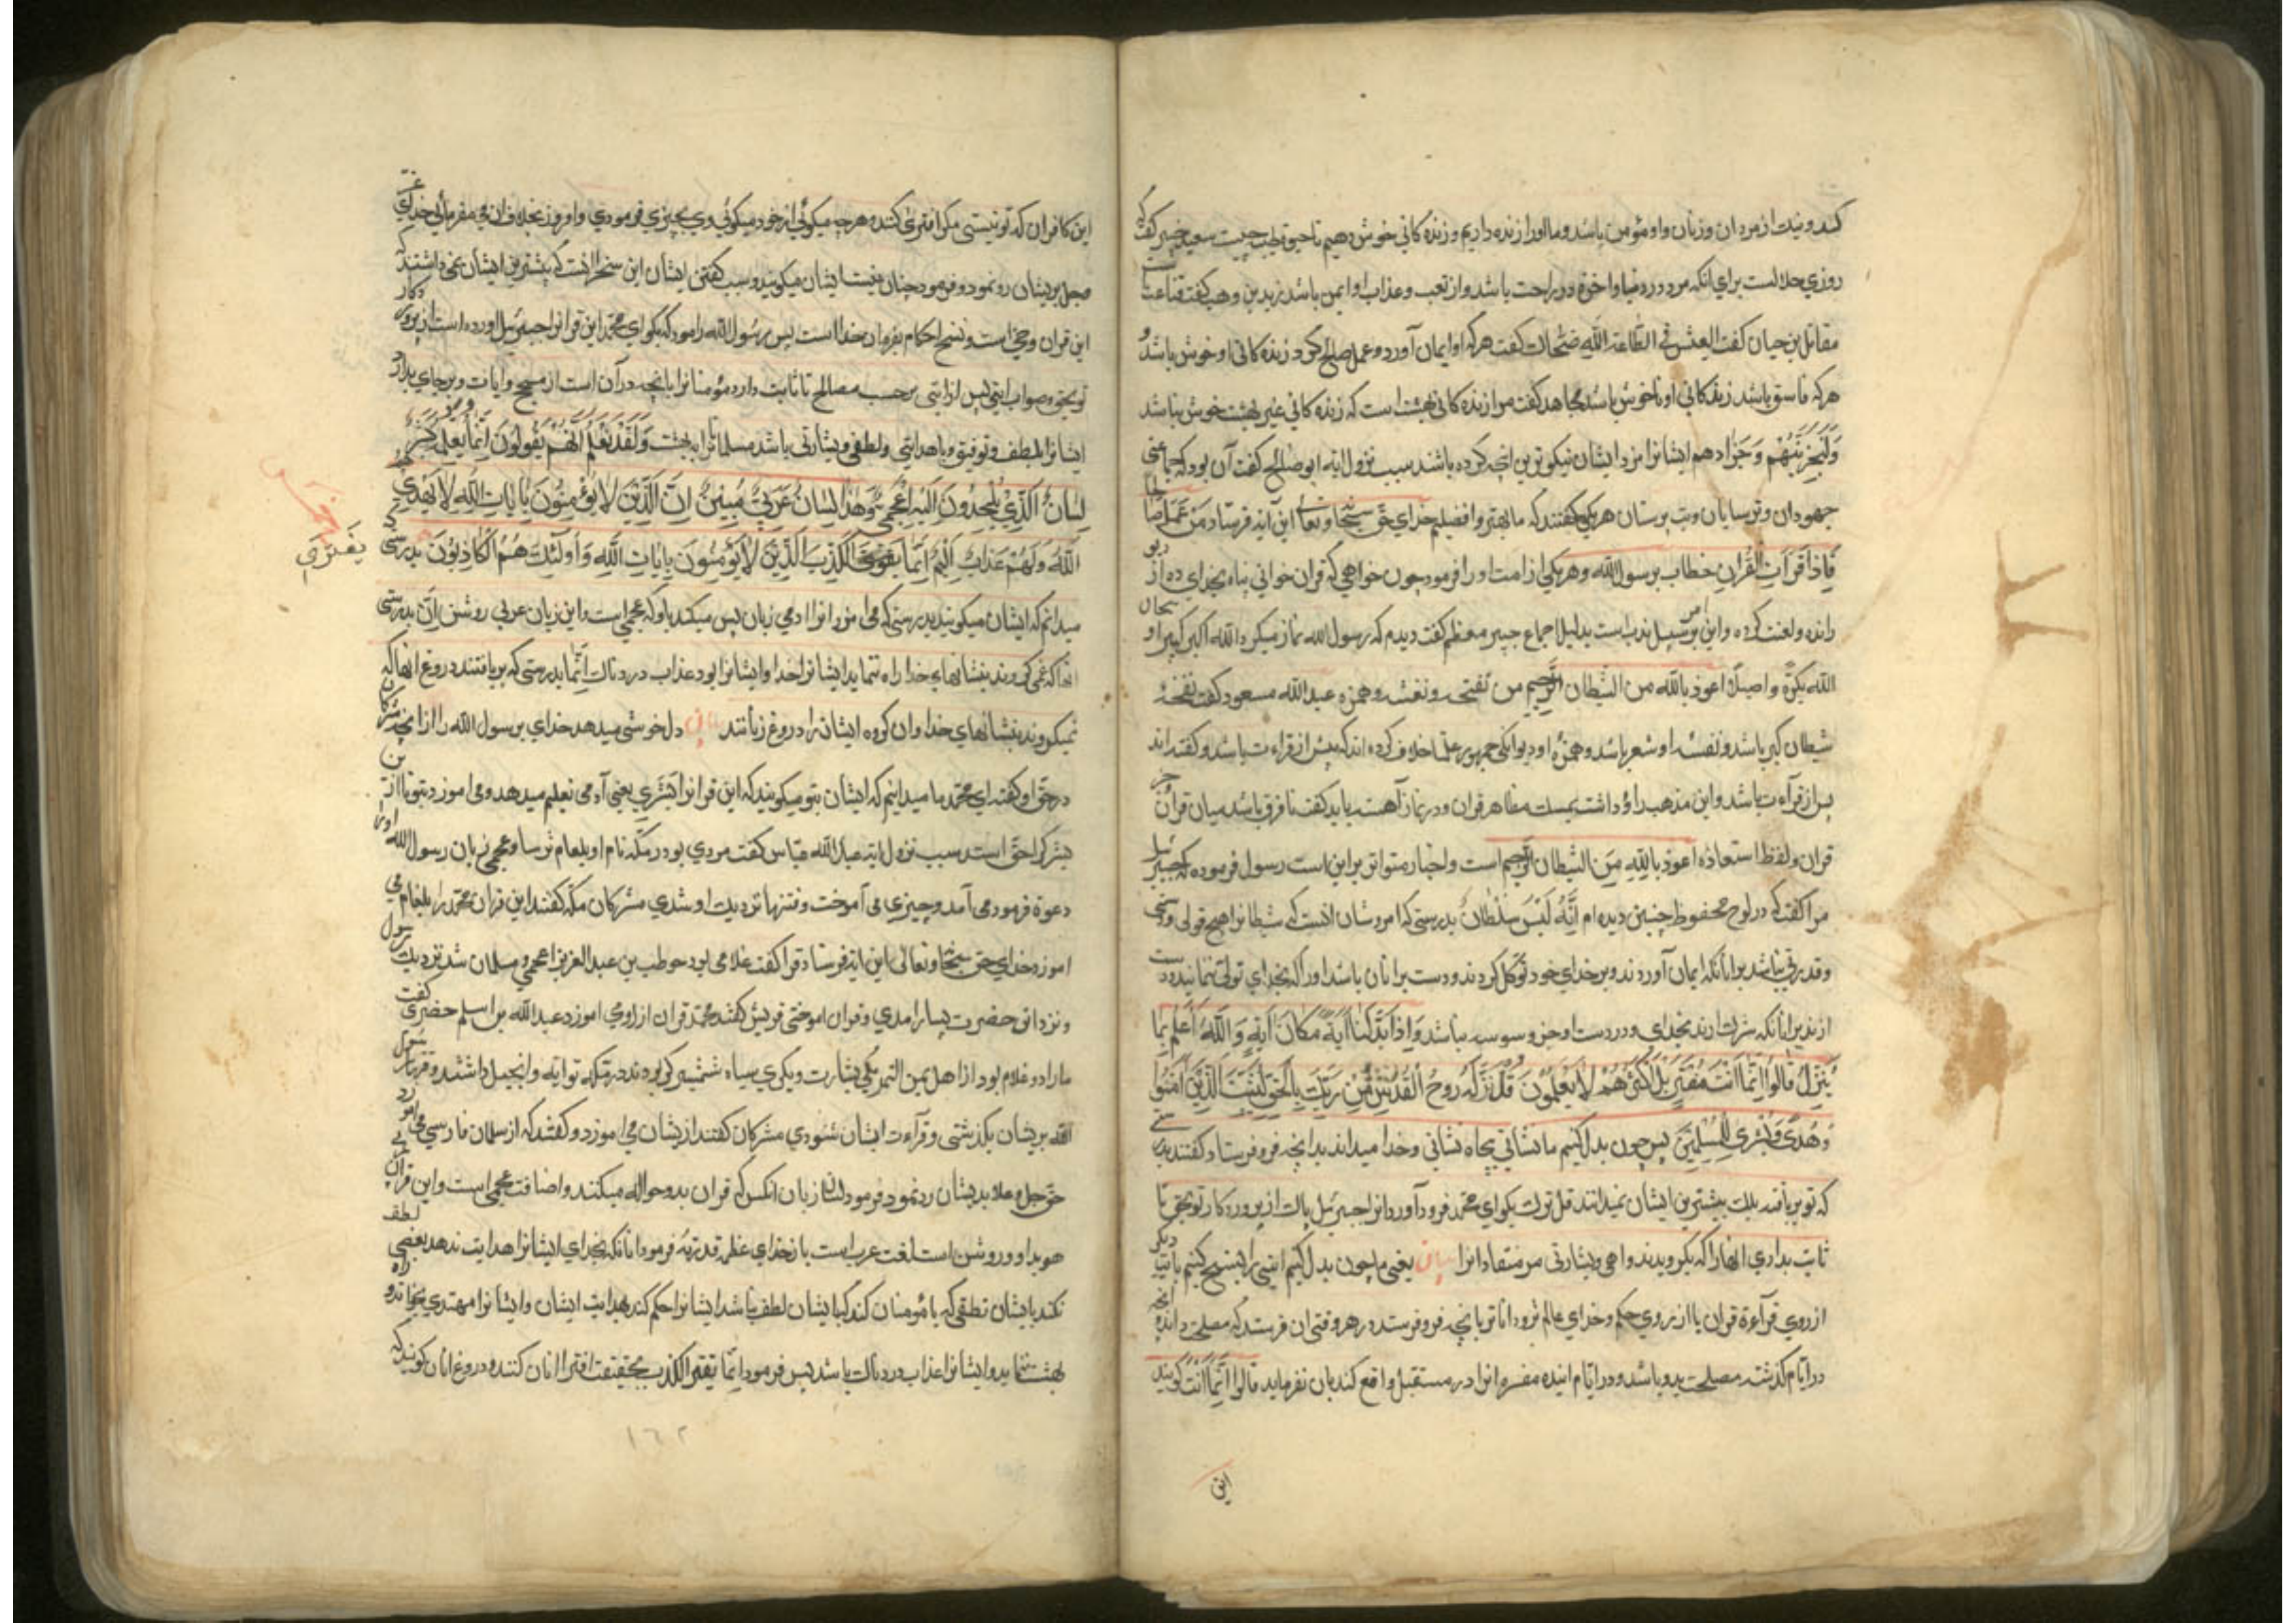 کند و نیک از مردان و زنان و او مؤمن باشد و ما او را زنده داریم و زنده کانی خوش دهیم تا حیوة طیب چیست سعید جبیر گفت که
روزي حلالست براي انکه مرد در دنیا و اخرة در راحت باشد و از تعب و عذاب او ایمن باشد زید بن وهب گفت قناعت است
مقاتل بن حیان گفت العیش فی الطاعة الله ضحاک گفت هرکه او ایمان آورد و عمل صالح کرد زنده کانی او خوش باشد و
هرکه فاسق باشد زنده کانی او ناخوش باشد مجاهد گفت مراد زنده کانی بهشت است که زنده کانی غیر بهشت خوش نباشد
وَلَنَجْزِيَنَّهُمْ وَجَزَا دهم ایشانرا مزد ایشان نیکوترین انچه کرده باشند سبب نزول ایه ابو صالح گفت آن بود که جماعتی
جهودان و ترسایان و بت پرستان هریکی گفتند که ما بهتر و افضلیم خداي حق سبحانه و تعالی این آیه فرستاد مَنْ عَمِلَ صَالِحًا
فَاِذَا قَرَأْتَ الْقُرْآنِ خطاب بر رسول الله و هریکی از امت او را فرمود چون خواهی که قران خوانی پناه بخداي ده از دیو
رانده و لعنت کرده و این بر سبیل ندب است بدلیل اجماع جبیر مطعم گفت دیدم که رسول الله نماز میکرد الله اکبر کبیرا و سبحان
الله بکرة و اصیلا اعوذ بالله من الشیطان الرجیم من نفخه و نفثه و همزه عبد الله مسعود گفت نفخهٔ
شیطان کبر باشد و نفثهٔ او شعر باشد و همزهٔ او دیوانگی جمهور علما خلاف کرده اند که پیش از قراءت باشد و گفته اند
پس از قرآءت باشد و این مذهب داؤد است بمست مظاهر قران و در نماز آهسته باید گفت تا فرق باشد میان قران جز
قران و لفظ استعاذه اعوذ بالله من الشیطان الرجیم است و اخبار متواتر بر این است رسول فرموده که جبرئیل
مرا گفت که در لوح محفوظ چنین دیده ام اِنَّهُ لَيْسَ لَهُ سُلْطَانٌ بدرستی که امر و شان انست که شیطانرا هیچ قولی و دستی
و قدرتی نباشد بر انانکه ایمان آوردند و بر خداي خود توکل کردند و دست بر انان باشد او را که بخداي تولی نمانید و دست
از ند بر انانکه شرک ارند بخداي و در دست او جز وسوسه نباشد وَاِذَا بَدَّلْنَا اٰيَةً مَكَانَ اٰيَةٍ وَاللّٰهُ اَعْلَمُ بِمَا
يُنَزِّلُ قَالُوا اِنَّمَا اَنْتَ مُفْتَرٍ بَلْ اَكْثَرُهُمْ لَا يَعْلَمُوْنَ قُلْ نَزَّلَهُ رُوحُ الْقُدُسِ مِنْ رَبِّكَ بِالْحَقِّ لِيُثَبِّتَ الَّذِيْنَ اٰمَنُوا
وَهُدًى وَبُشْرَى لِلْمُسْلِمِيْنَ پس چون بدل کنیم ما نشانی بجاه نشانی و خدا میداند بدانچه فرو فرستاد گفتند بدرستی
که تو بر بافنده بلک بیشترین ایشان نمیدانند قل تو بگو اي محمد فرود آورد انرا جبرئیل پاک از پروردگار تو بحق تا
ثابت بداري انها را که بگرویدند و راهی و بشارتی مر منقادانرا بیان یعنی ما چون بدل کنیم ایتی را بنسخ کنیم بآیتی دیگر
از روي قرآءة قران یا از روي حکم و خداي عالم ترود انا تر بانچه فرو فرستد در هر وقتی ان فرستد که مصلحت داند انچه
در ایام گذشته مصلحت بدو باشد و در ایام اینده مفسده انرا در مستقبل واقع کند بان نفرماید قالوا انّما انت گویند
این
این کافران که تو نیستی مگر افتری کننده هرچه میگوئی از خود میگوئي دي بچیزي فرمودي و امروز بخلاف ان می فرمائي خداي عزّ
و جل بریشان رد نمود و فرمود چنان نیست ایشان میگویند و سبب گفتن ایشان این سخن انست که بیشترین ایشان نمی دانستند که
این قران وحی است و نسخ احکام بفرمان خدا است پس رسول الله را امر کرد که بگو اي محمد این قرانرا جبرئیل اورده است از پروردگار
تو بحق و صواب ایتی پس از ایتی بر حسب مصالح تا ثابت دارد مؤمنانرا بانچه در آن است از حجج و ایات و بر جاي بدارد
ایشانرا بلطف و توفیق و با هدایتی و لطفی و بشارتی باشد مسلمانانرا به بهشت وَلَقَدْ نَعْلَمُ اَنَّهُمْ يَقُولُونَ اِنَّمَا يُعَلِّمُهُ بَشَرٌ
لِسَانُ الَّذِيْ يُلْحِدُونَ اِلَيْهِ اَعْجَمِيٌّ وَهٰذَا لِسَانٌ عَرَبِيٌّ مُبِيْنٌ اِنَّ الَّذِيْنَ لَا يُؤْمِنُونَ بِاٰيَاتِ اللّٰهِ لَا يَهْدِيْهِمُ
اللّٰهُ وَلَهُمْ عَذَابٌ اَلِيْمٌ اِنَّمَا يَفْتَرِى الْكَذِبَ الَّذِيْنَ لَا يُؤْمِنُونَ بِاٰيَاتِ اللّٰهِ وَاُولٰئِكَ هُمُ الْكَاذِبُونَ بدرستی که
یفتري
میدانم که ایشان میگویند بدرستی که می اموزد انرا ادمی زبان پس میکند باو که عجمی است و این زبان عربی روشن اِنَّ بدرستی
انها که نمی گروند بنشانهاي خدا راه ننماید ایشانرا خدا و ایشانرا بود عذاب دردناک اِنَّمَا بدرستی که بر بافتند دروغ انها که
نمیگروند بنشانهاي خدا و ان گروه ایشانند دروغ زنانند بیان دل خوشی میدهد خداي بر رسول الله را از انچه مشرکان
در حق او گفته اي محمد ما میدانیم که ایشان بتو میگویند که این قرانرا بشري یعنی آدمی تعلیم میدهد و می اموزد بتو نا از
بشر گر احق است سبب نزول ایه عبد الله عباس گفت مردي بود در مکه نام او بلعام ترسا و عجمی زبان رسول الله اورا
دعوة فرمود می آمد و چیزي می آموخت و فتنها نزدیک او شدي مشرکان مکه گفتند این قران محمد را بلعام می
اموزد خداي حق سبحانه و تعالی این ایه فرستاد قرا گفت غلامی بود حوطب بن عبد العزی اعجمی و مسلمان شد نزدیک رسول
و نزد ان حضرت بسیار امدي و قران اموختی قریش گفتند محمد قران از اروي اموزد عبد الله بن اسلم حضری گفت
ما را دو غلام بود از اهل یمن التمر یکی بشارت و یکی سیاه شمشیر گر بودند در مکه توراته و انجیل داشتند و رسول
الله بریشان بگذشتی و قرآءت ایشان شنودي مشرکان گفتند از یشان می اموزد و گفتند که از سلمان فارسی می اموزد
حق جل و علا بدیشان رد نمود فرمود لسان زبان انکس که قران بدو حواله میکنند و اضافت عجمی است و این قرآن
هویدا و روشن است لغت عرب است باز خداي عظم قدرته فرمود انانکه بخداي ایشانرا هدایت ندهد یعنی لطف
نکند بایشان تطفی که با مؤمنان کند که ایشان لطف باشد ایشانرا حکم کند بهدایت ایشان و ایشانرا مهتدي نخواند و راه
بهشت ننماید و ایشانرا عذاب دردناک باشد پس فرمود انّما یفتری الکذب بحقیقت افترا انان کنند و دروغ انان گویند که
١٦٢